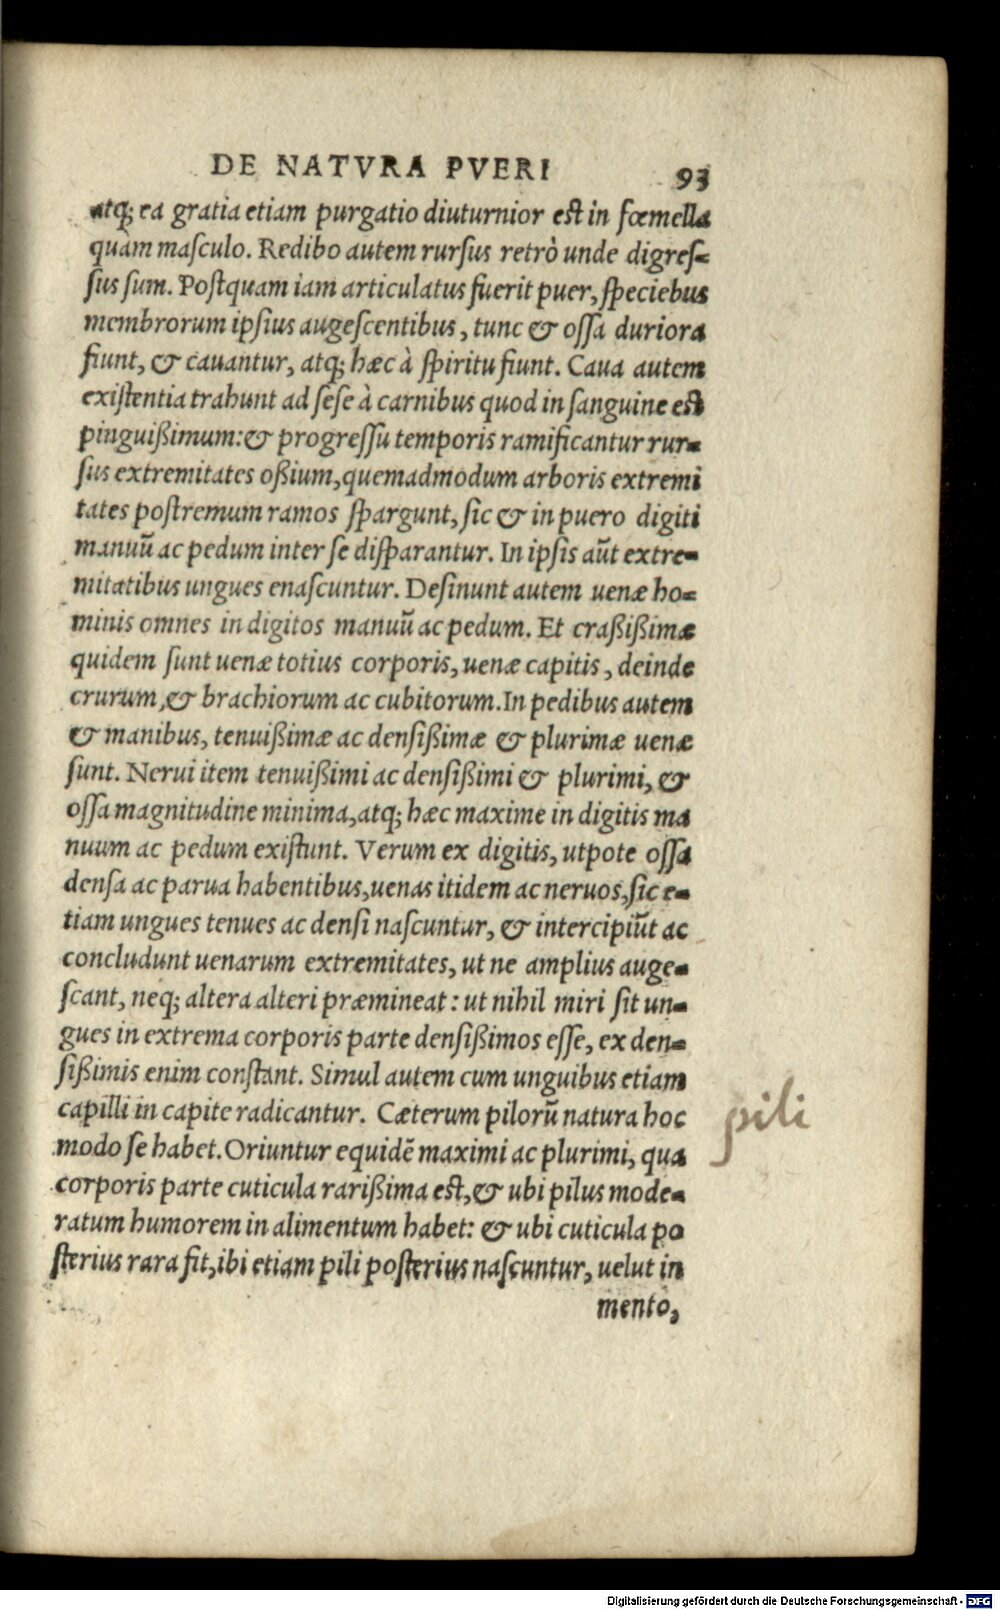 DE NATVRA PVERI 93
atq; ea gratia etiam purgatio diuturnior est in fœmella
quàm masculo. Redibo autem rursus retrò unde digreſ-
ſus ſum. Poſtquam iam articulatus fuerit puer, ſpeciebus
membrorum ipſius augeſcentibus, tunc & oſſa duriora
fiunt, & cauantur, atq; hæc à ſpiritu fiunt. Caua autem
exiſtentia trahunt ad ſeſe à carnibus quod in ſanguine est
pinguißimum: & progreſſu temporis ramificantur rur-
ſus extremitates oßium, quemadmodum arboris extremi
tates poſtremum ramos ſpargunt, ſic & in puero digiti
manuū ac pedum inter ſe diſparantur. In ipſis aūt extre-
mitatibus ungues enaſcuntur. Deſinunt autem uenæ ho-
minis omnes in digitos manuū ac pedum. Et craßißimæ
quidem ſunt uenæ totius corporis, uenæ capitis, deinde
crurum, & brachiorum ac cubitorum. In pedibus autem
& manibus, tenuißimæ ac denſißimæ & plurimæ uenæ
ſunt. Nerui item tenuißimi ac denſißimi & plurimi, &
oſſa magnitudine minima, atq; hæc maxime in digitis ma
nuum ac pedum exiſtunt. Verum ex digitis, utpote oſſa
denſa ac parua habentibus, uenas itidem ac neruos, ſic e-
tiam ungues tenues ac denſi naſcuntur, & intercipiūt ac
concludunt uenarum extremitates, ut ne amplius auge-
ſcant, neq; altera alteri præmineat: ut nihil miri ſit un-
gues in extrema corporis parte denſißimos eſſe, ex den-
ſißimis enim conſtant. Simul autem cum unguibus etiam
capilli in capite radicantur. Cæterum pilorū natura hoc
modo ſe habet. Oriuntur equidē maximi ac plurimi, qua
corporis parte cuticula rarißima est, & ubi pilus mode-
ratum humorem in alimentum habet: & ubi cuticula po
ſterius rara fit, ibi etiam pili poſterius naſcuntur, uelut in
mento,
pili
Digitalisierung gefördert durch die Deutsche Forschungsgemeinschaft - DFG